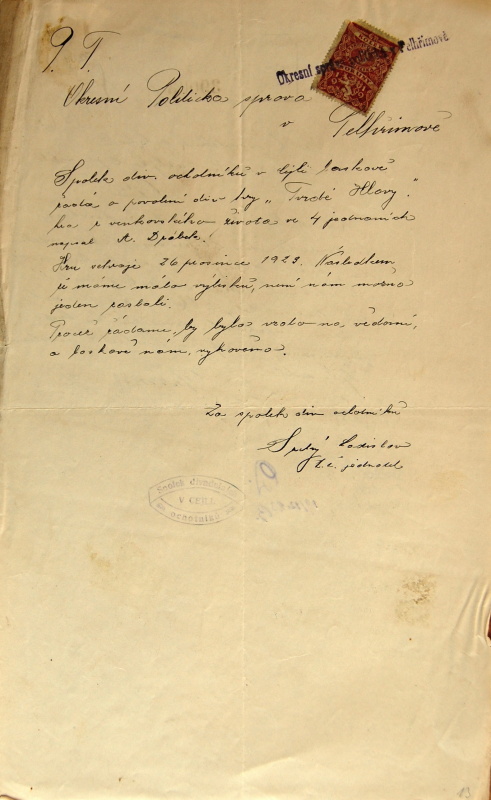 P. T.
Okresní Pelhřimově
Okresní Politická sprava
v Pelhřimově
Spolek div. ochotníků v Cejli laskavě
žádá o povolení div. hry „Tvrdé Hlavy".
hra z venkovského života ve 4 jednáních
napsal A. Drábek.
Hru sehraje 26 prosince 1923. Následkem
že máme málo výtisků, není nám možno
jeden zaslati.
Pročež žádáme, by bylo vzato na vědomí,
a laskavě nám, vyhověno.
Za spolek div. ochotníků
Ladislav
t. č. jednatel
Spolek divadelních
V CEJLI
ochotníků
13